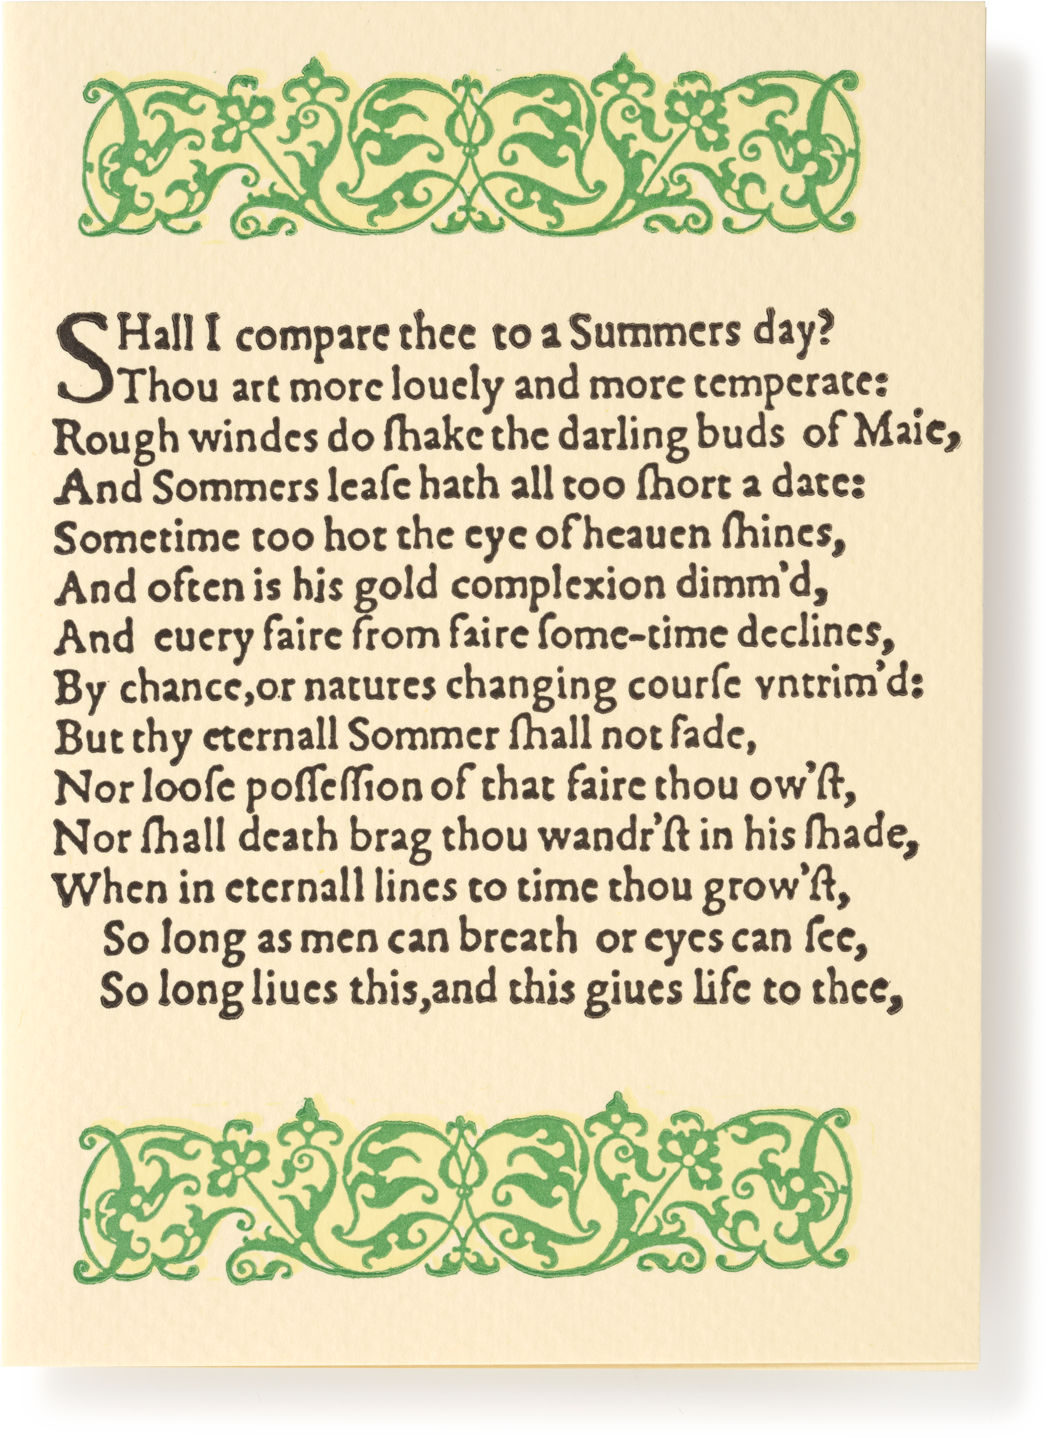 SHall I compare thee to a Summers day?
Thou art more louely and more temperate:
Rough windes do ſhake the darling buds of Maie,
And Sommers leaſe hath all too ſhort a date:
Sometime too hot the eye of heauen ſhines,
And often is his gold complexion dimm'd,
And euery faire from faire ſome-time declines,
By chance,or natures changing courſe vntrim'd:
But thy eternall Sommer ſhall not fade,
Nor looſe poſſeſſion of that faire thou ow'ſt,
Nor ſhall death brag thou wandr'ſt in his ſhade,
When in eternall lines to time thou grow'ſt,
So long as men can breath or eyes can ſee,
So long liues this,and this giues life to thee,